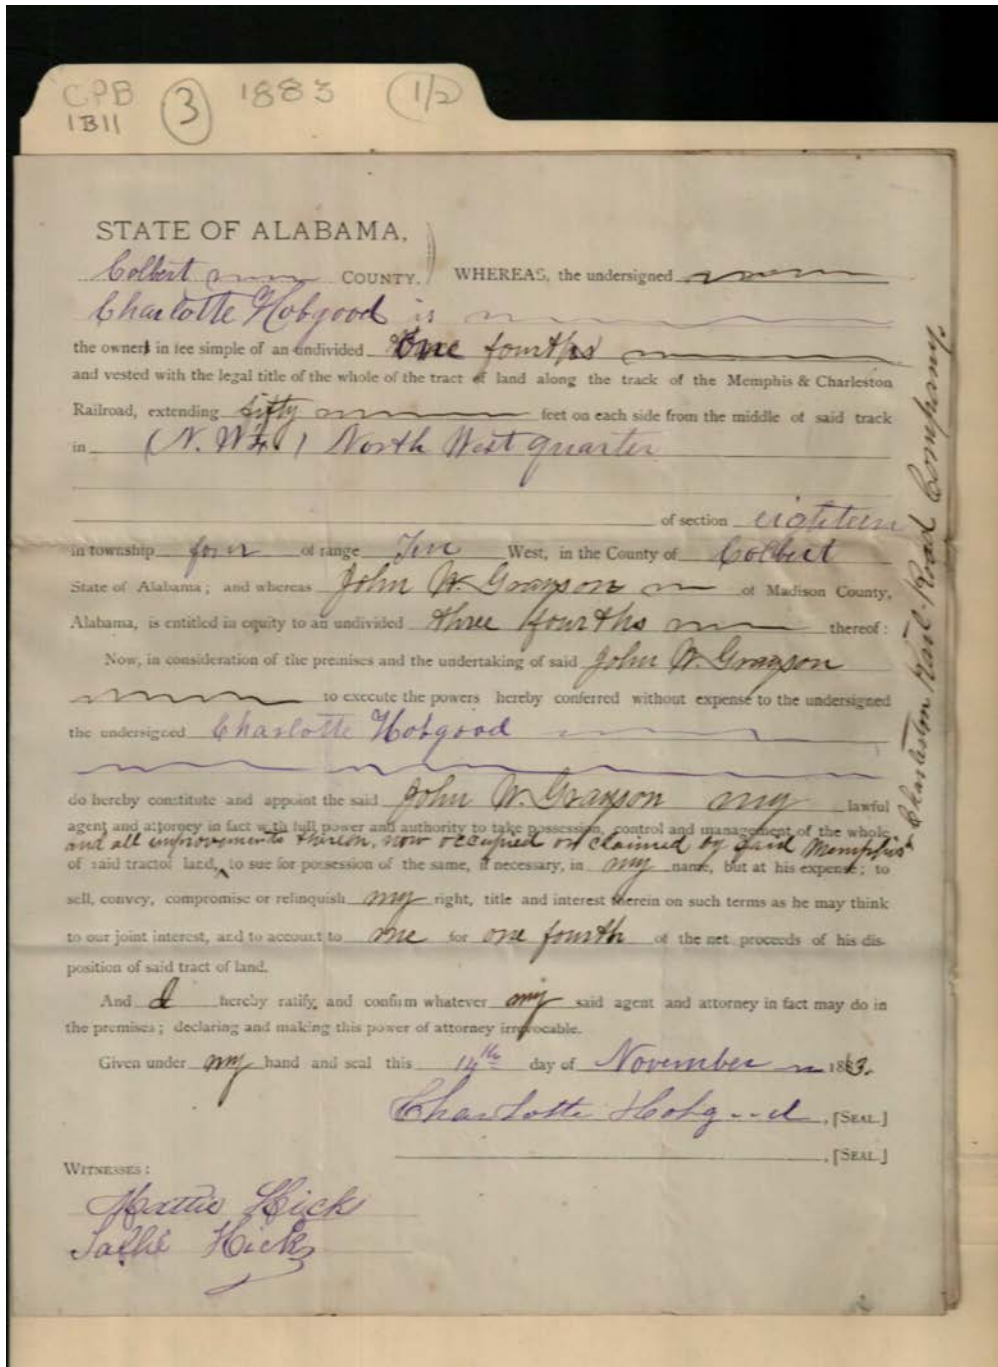 CPB 3 1883 (1/2)
1B11
STATE OF ALABAMA,
Colbert COUNTY. WHEREAS, the undersigned
Charlotte Hobgood is
the owner in fee simple of an undivided One fourths
and vested with the legal title of the whole of the tract of land along the track of the Memphis & Charleston
Railroad, extending fifty feet on each side from the middle of said track
in (N.W¼) North West quarter
of section eighteen
in township four of range Ten West, in the County of Colbert
State of Alabama; and whereas John W. Grayson of Madison County,
Alabama, is entitled in equity to an undivided three fourths thereof:
Now, in consideration of the premises and the undertaking of said John W. Grayson
to execute the powers hereby conferred without expense to the undersigned
the undersigned Charlotte Hobgood
do hereby constitute and appoint the said John W. Grayson my lawful
agent and attorney in fact with full power and authority to take possession, control and management of the whole
and all improvements thereon, now occupied or claimed by said Memphis &
Charleston Rail-Road Company
of said tract of land, to sue for possession of the same, if necessary, in my name, but at his expense; to
sell, convey, compromise or relinquish my right, title and interest therein on such terms as he may think
to our joint interest, and to account to me for one fourth of the net proceeds of his dis-
position of said tract of land.
And I hereby ratify, and confirm whatever my said agent and attorney in fact may do in
the premises; declaring and making this power of attorney irrevocable.
Given under my hand and seal this 14th day of November 1883.
Charlotte Hobg..d, [SEAL]
, [SEAL]
WITNESSES:
Mattie Hicks
Sallie Hicks